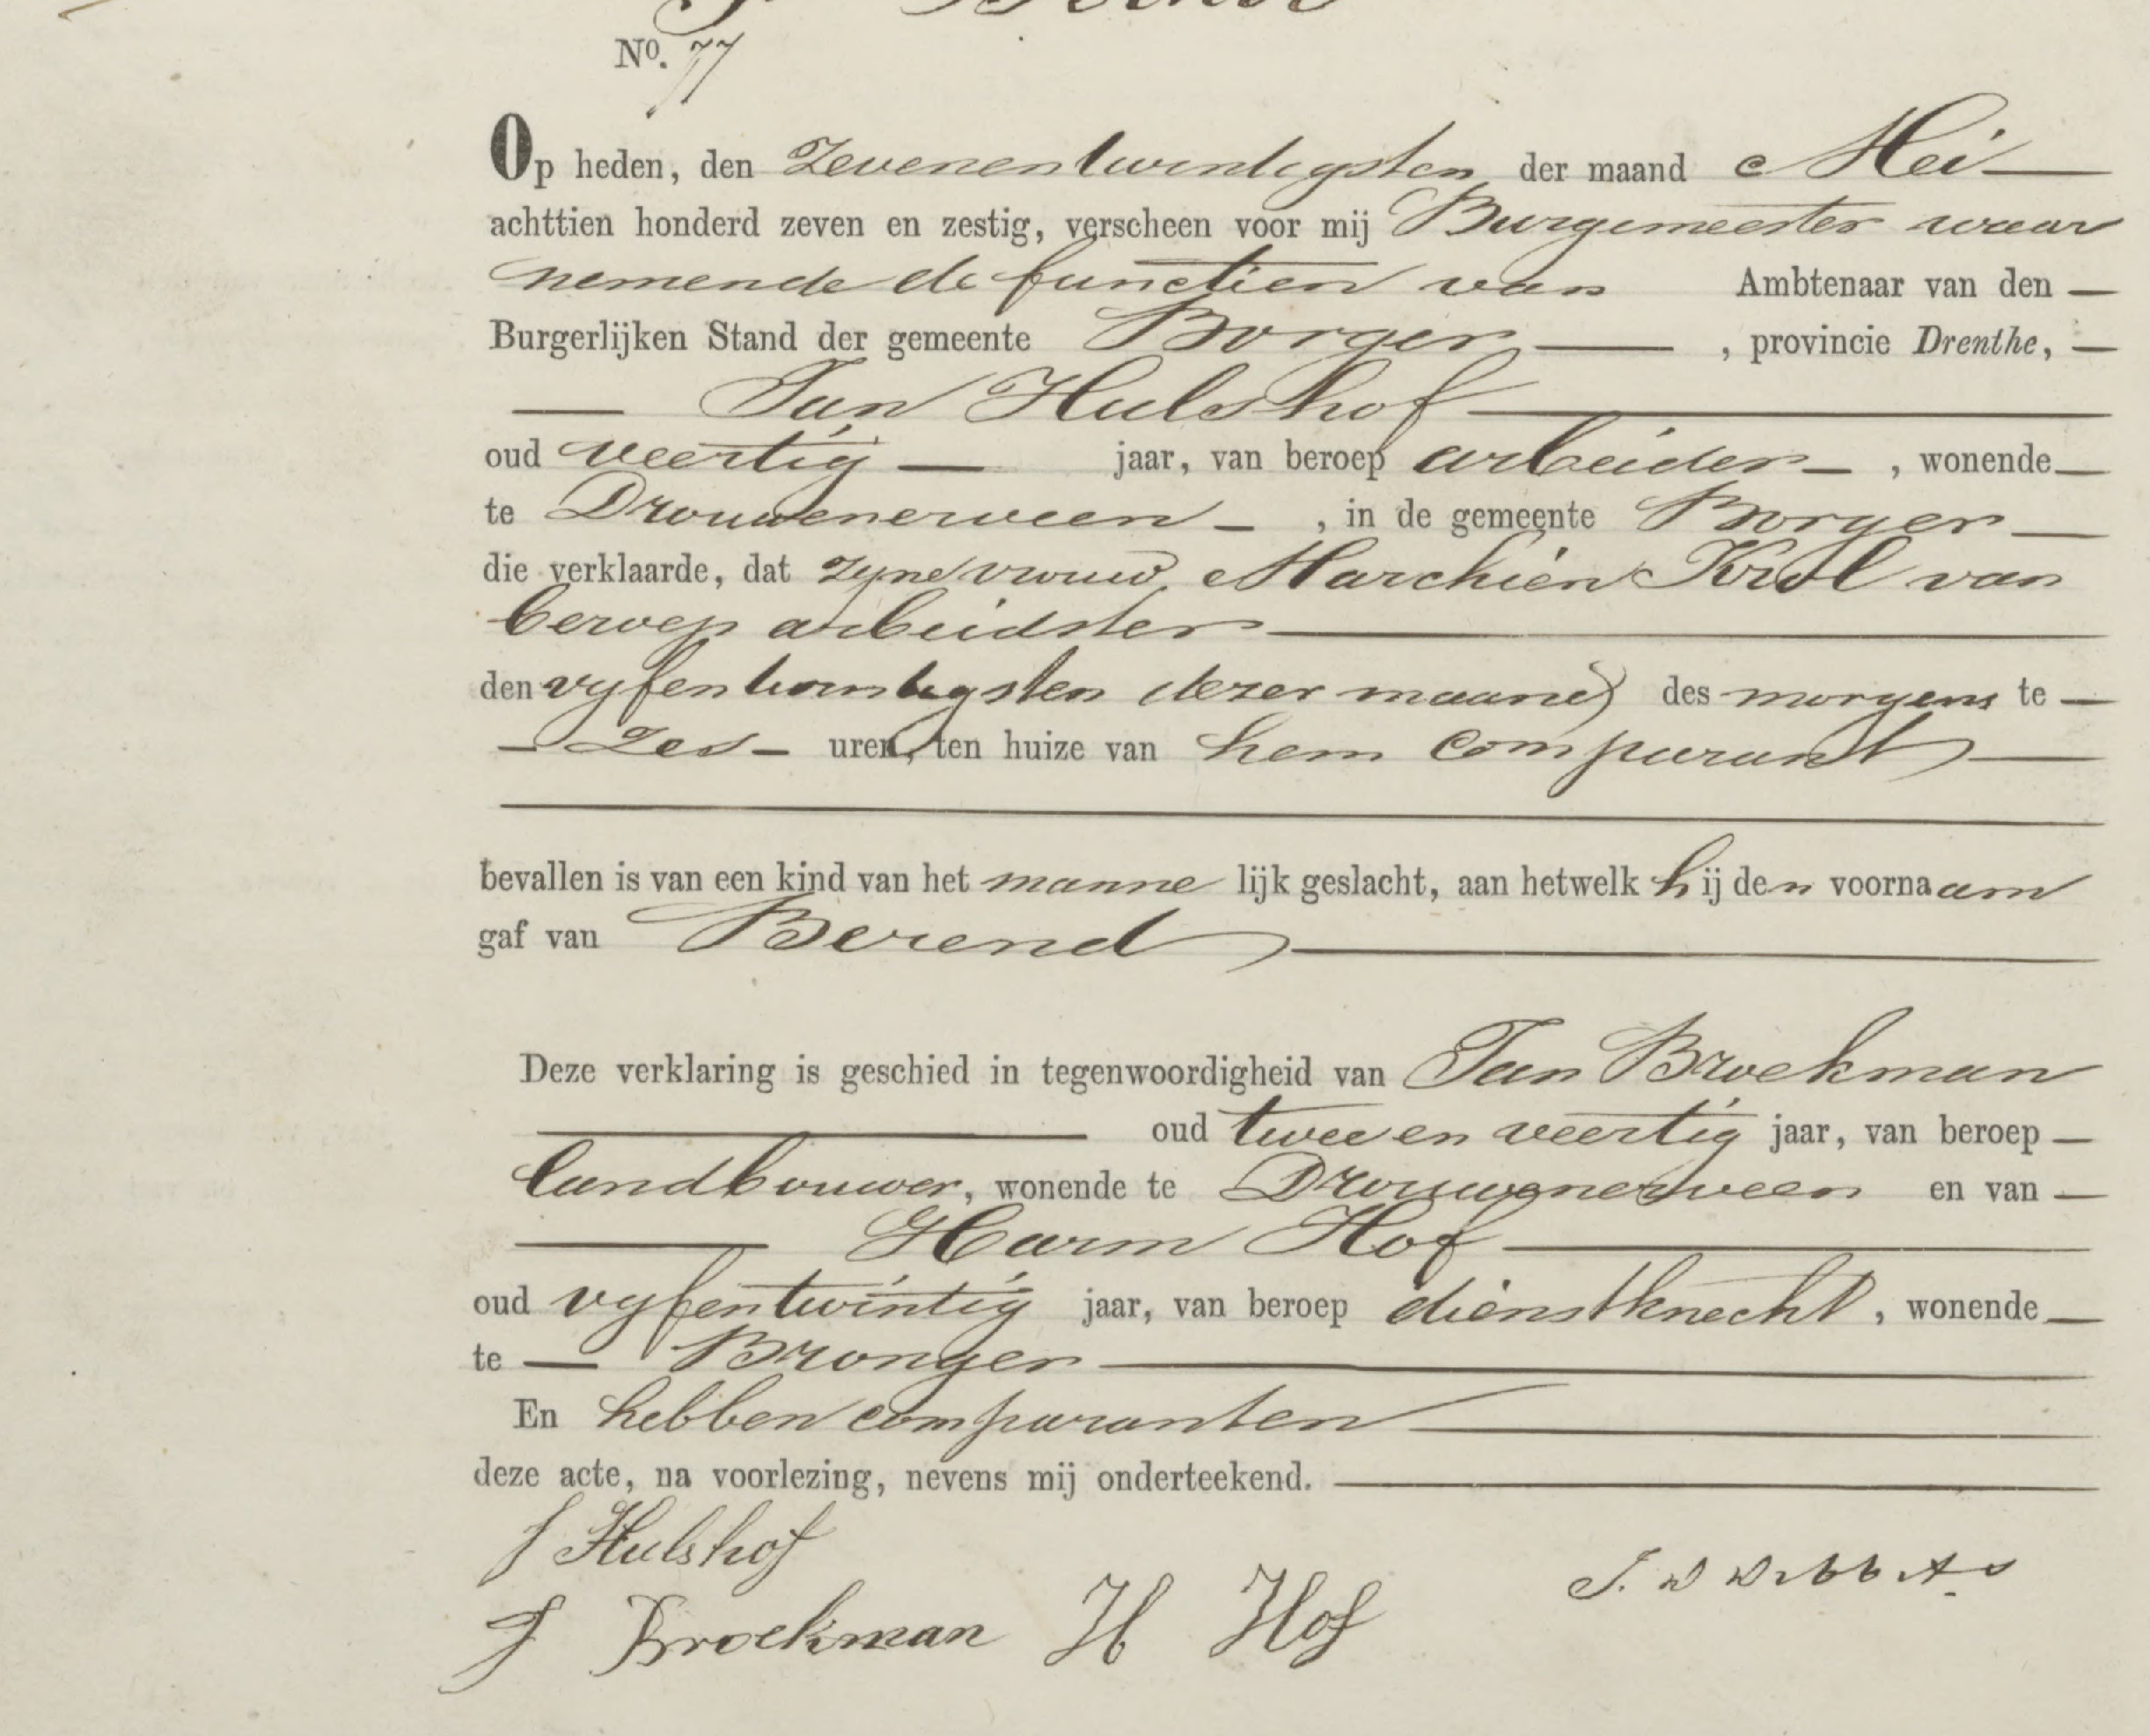 No. 77
Op heden, den Zevenentwintigsten der maand Mei
achttien honderd zeven en zestig, verscheen voor mij Burgemeester waar
nemende de functien van Ambtenaar van den
Burgerlijken Stand der gemeente Borger, provincie Drenthe,
Jan Hulshof
oud veertig jaar, van beroep arbeider, wonende
te Drouwenerveen, in de gemeente Borger
die verklaarde, dat zyne vrouw, Marchien Krol van
beroep arbeidster
den vyfentwintigsten dezer maand des morgens te
zes uren, ten huize van hem comparant
bevallen is van een kind van het mannelijk geslacht, aan hetwelk hij den voornaam
gaf van Berend
Deze verklaring is geschied in tegenwoordigheid van Jan Broekman
oud twee en veertig jaar, van beroep
landbouwer, wonende te Drouwenerveen en van
Harm Hof
oud vyfentwintig jaar, van beroep dienstknecht, wonende
te Bronger
En hebben comparanten
deze acte, na voorlezing, nevens mij onderteekend.
J Hulshof
J Broekman H Hof